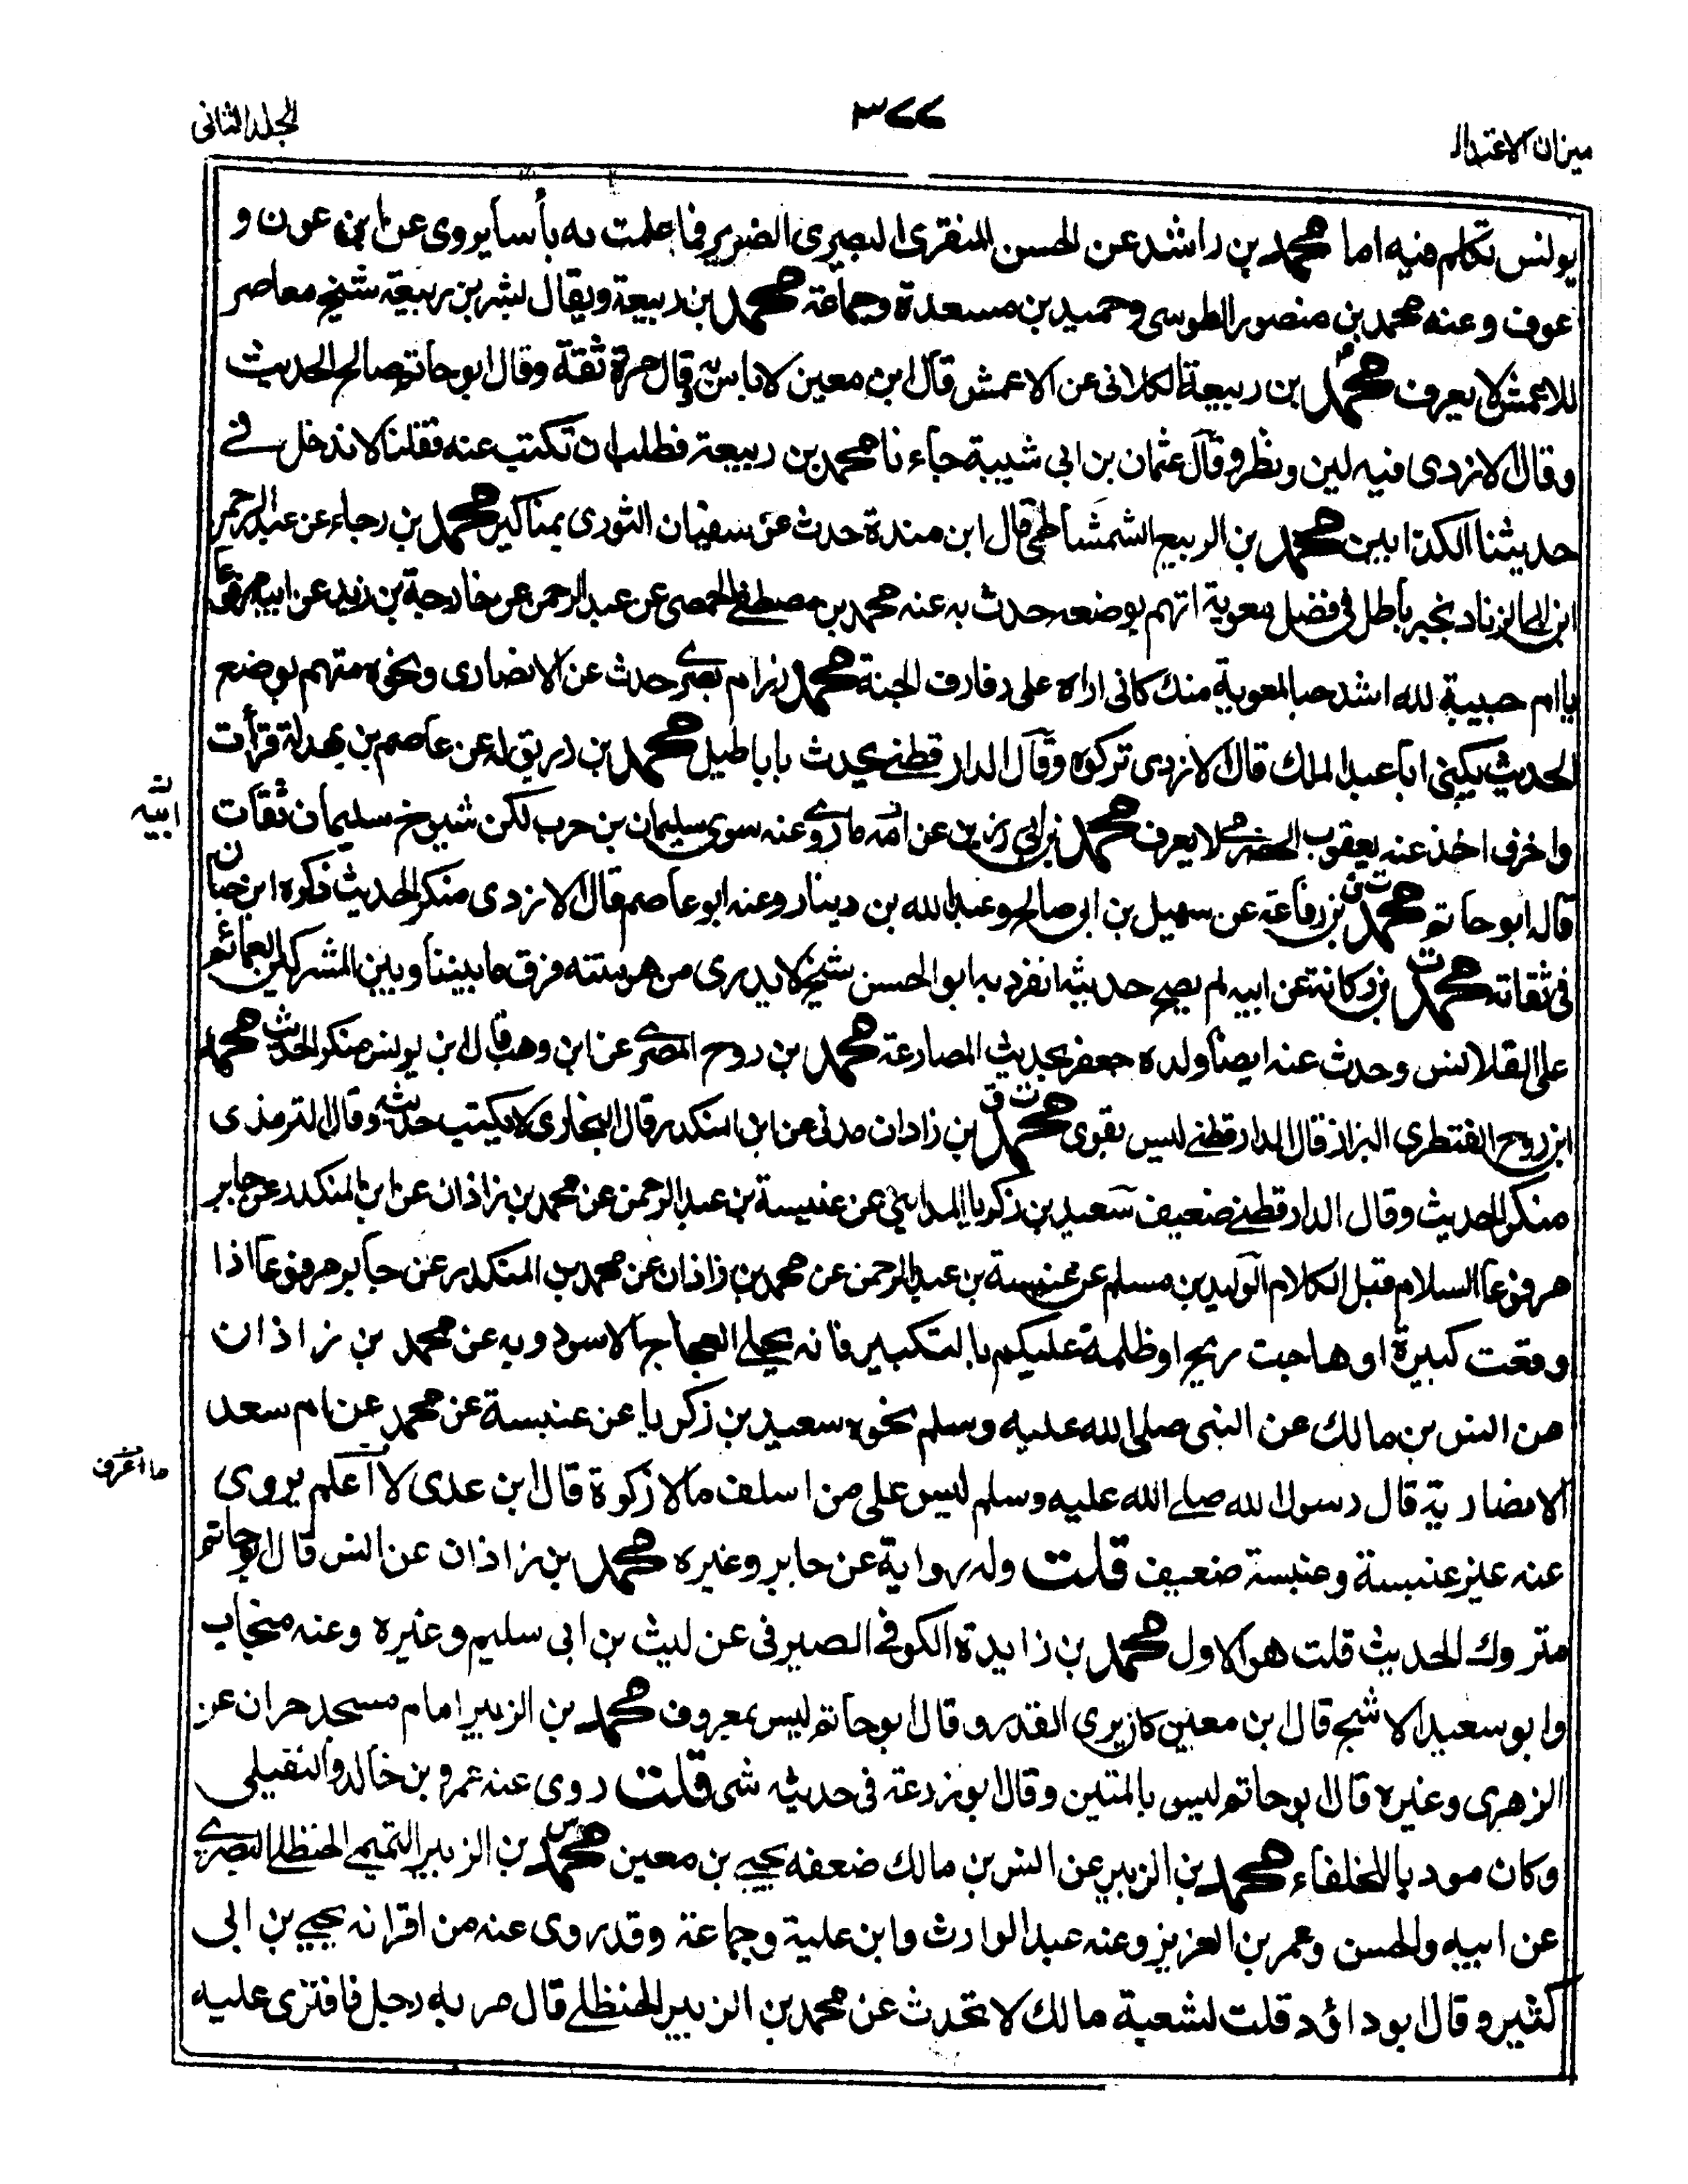 ميزان الاعتدال
٣٧٧
المجلد الثاني
يونس تكلم فيه اما محمد بن راشد عن الحسن المنقرى البصرى الضرير فما علمت به بأسا يروى عن ابن عون و
عوف وعنه محمد بن منصور الطوسى وحميد بن مسعدة وجماعة محمد بن ربيعة ويقال بشر بن ربيعة شيخ معاصر
للاعمش لا يعرف محمد بن ربيعة الكلابى عن الاعمش قال ابن معين لا باس به وقال مرة ثقة وقال ابو حاتم صالح الحديث
وقال الازدى فيه لين ونظر وقال عثمان بن ابى شيبة جاءنا محمد بن ربيعة فطلب ان نكتب عنه فقلنا لا ندخل في
حديثنا الكذابين محمد بن الربيع الشمشاطى قال ابن مندة حدث عن سفيان الثورى بمناكير محمد بن رجاء عن عبد الرحمن
ابن ابى الزناد بخبر باطل فى فضل معوية اتهم بوضعه حدث به عنه محمد بن مصطفى الحمصى عن عبد الرحمن عن خارجة بن زيد عن ابيه مرفوعا
يا ام حبيبة لله اشد حبا لمعوية منك كانى اراه على رفارف الجنة محمد بن رزام بصرى حدث عن الانصارى ونحوه متهم بوضع
الحديث يكنى ابا عبد الملك قال الازدى تركوه وقال الدارقطنى يحدث باباطيل محمد بن زريق له عن عاصم بن بهدلة قرأت
واخرف اخذ عنه يعقوب الحضرمى لا يعرف محمد بن ابى رزين عن امه ما روى عنه سوى سليمان بن حرب لكن شيوخ سليمان ثقات
ابيه
قاله ابو حاتم محمد بن رفاعة عن سهيل بن ابى صالح وعبد الله بن دينار وعنه ابو عاصم قال الازدى منكر الحديث ذكره ابن حبان
فى ثقاته محمد بن ركانة عن ابيه لم يصح حديثه انفرد به ابو الحسن شيخ لا يدرى من هو متنه فرق ما بيننا وبين المشركين العمائم
على القلانس وحدث عنه ايضا ولده جعفر بحديث المصارعة محمد بن روح المصرى عن ابن وهب قال ابن يونس منكر الحديث محمد
ابن روح القنطرى البزاز قال الدارقطنى ليس بقوى محمد بن زاذان مدنى عن ابن المنكدر قال البخارى لا يكتب حديثه وقال الترمذى
منكر الحديث وقال الدارقطنى ضعيف سعيد بن زكريا المدائنى عن عنبسة بن عبد الرحمن عن محمد بن زاذان عن ابن المنكدر عن جابر
مرفوعا السلام قبل الكلام الوليد بن مسلم عن عنبسة بن عبد الرحمن عن محمد بن زاذان عن محمد بن المنكدر عن جابر مرفوعا اذا
وقعت كبيرة او هاجت ريح او ظلمة عليكم بالتكبير فانه يجلى العجاج الاسود وبه عن محمد بن زاذان
عن انس بن مالك عن النبى صلى الله عليه وسلم نحوه سعيد بن زكريا عن عنبسة عن محمد عن ام سعد
الانصارية قال رسول الله صلى الله عليه وسلم ليس على من اسلف مالا زكوة قال ابن عدى لا اعلم يروى
ما اعرف
عنه غير عنبسة وعنبسة ضعيف قلت وله رواية عن جابر وغيره محمد بن زاذان عن انس قال ابو حاتم
متروك الحديث قلت هو الاول محمد بن زايدة الكوفى الصيرفى عن ليث بن ابى سليم وغيره وعنه منجاب
وابو سعيد الاشج قال ابن معين كان يرى القدر وقال ابو حاتم ليس بمعروف محمد بن الزبير امام مسجد حران عن
الزهرى وغيره قال ابو حاتم ليس بالمتين وقال ابو زرعة فى حديثه شى قلت روى عنه عمرو بن خالد والنفيلى
وكان مودبا للخلفاء محمد بن الزبير عن انس بن مالك ضعفه يحيى بن معين محمد بن الزبير التميمى الحنظلى البصرى
عن ابيه والحسن وعمر بن العزيز وعنه عبد الوارث وابن علية وجماعة وقد روى عنه من اقرانه يحيى بن ابى
كثير وقال ابو داؤد قلت لشعبة مالك لا تحدث عن محمد بن الزبير الحنظلى قال مر به رجل فافترى عليه